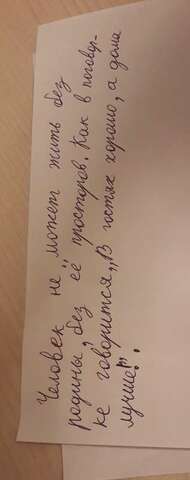 Человек не может жить без
родины, без её просторов. Как в поговор-
ке говорится, „В гостях хорошо, а дома
лучше!".